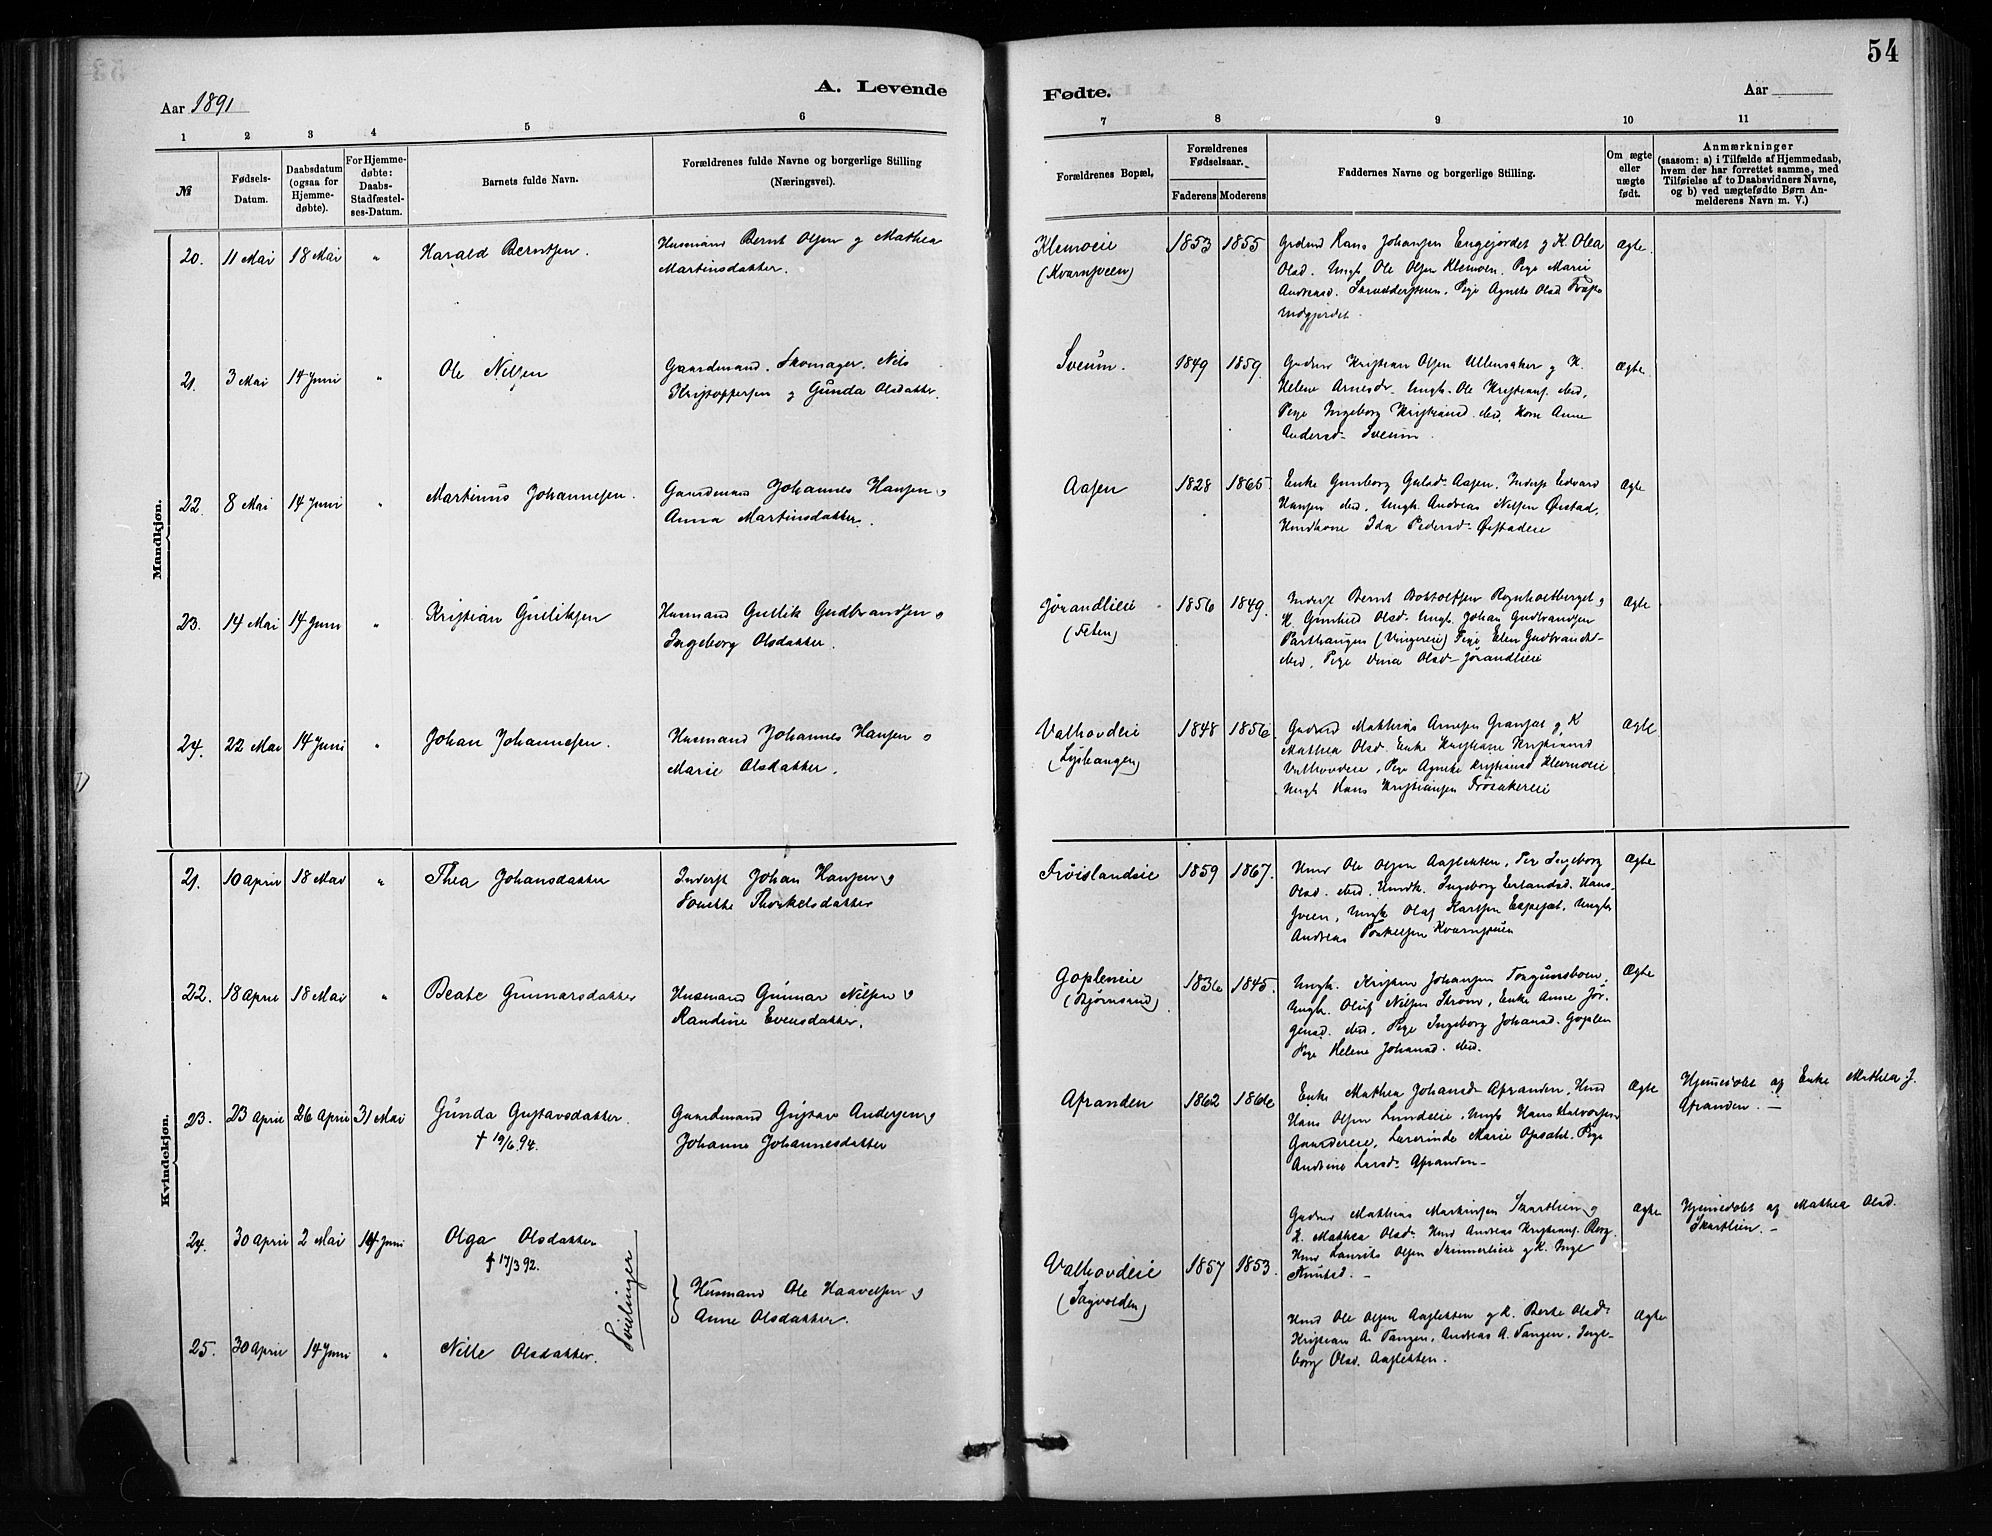 54
A. Levende
Fødte.
Aar 1891
Aar
1 2 3 4 5 6
7 8 9 10 11
№
Fødsels-Datum.
Daabsdatum (ogsaa for Hjemme-døbte).
For Hjemme-døbte: Daabs-Stadfæstel-ses-Datum.
Barnets fulde Navn.
Forældrenes fulde Navne og borgerlige Stilling
(Næringsvei).
Forældrenes Bopæl,
Forældrenes Fødselsaar.
Faderens Moderens
Faddernes Navne og borgerlige Stilling.
Om ægte eller uægte født.
Anmærkninger
(saasom: a) i Tilfælde af Hjemmedaab,
hvem der har forrettet samme, med
Tilføielse af to Daabsvidners Navne,
og b) ved uægtefødte Børn An-
melderens Navn m. V.)
Mandkjøn.
20. 11 Mai 18 Mai " Harald Berntsen.
Husmand Bernt Olsen og Mathea
Martinsdatter.
Klemoeie
(Kvarnsveen)
1853 1855
Grdmd Hans Johansen Engejordet og K. Olea
Olsd. Ungk. Ole Olsen Klemoen. Pige Marie
Andreasd. Pige Agnete Olsd
Ægte
21. 3 Mai 14 Juni " Ole Nilsen
Gaardmand. Skomager. Nils
Kristoffersen og Gunda Olsdatter.
Sveum.
1849 1859
Grdmd Kristian Olsen Ullensaker og K.
Helene Arnesdr. Ungk. Ole Kristians. ibid,
Pige Ingeborg Kristiansd. ibid, Kone Anne
Andersd. Sveum.
Ægte
22. 8 Mai 14 Juni " Martinus Johannesen.
Gaardmand Johannes Hansen og
Anna Martinsdatter.
Aasen
1828 1865
Enke Gunborg Aasen, Inders Edvard
Hansen ibid, Ungk. Andreas Nilsen Øistad,
Kone Ida Pedersd. Øistadeie
Ægte
23. 14 Mai 14 Juni " Kristian Gulliksen
Husmand Gullik Gudbrandsen og
Ingeborg Olsdatter.
Jørandlieie
(Feten)
1856 1849.
Inderst Bernt og
K. Gunhild Olsd. Ungk. Johan Gudbrandsen
(Vingereie) Pige Elen Gudbrandsd.
ibid, Pige Olsd. Jørandlieie
Ægte
24. 22 Mai 14 Juni " Johan Johannesen.
Husmand Johannes Hansen og
Marie Olsdatter.
Valhovdeie
(Lyshaugen)
1848 1856
Grdmd Mathias Arnesen og K
Mathea Olsd. Enke Kristiane Kristiansd
Valhovdeie, Pige Agnete Kristiansd Klevmoeie
Ungk Hans Kristiansen Frøsakereie
Ægte
Kvindekjøn.
21. 10 April 18 Mai " Thea Johansdatter
Inderst Johan Hansen og
Thorkelsdatter
Frøislandeie
1859 1867.
Hmd Ole Olsen Aasletten, Pige Ingeborg
Olsd. ibid. Ingeborg Erlandsd. Hans-
Ungk Olaf Karlsen Ungk
Andreas Torkelsen Kvarnsveen
Ægte
22. 18 April 18 Mai " Beate Gunnarsdatter
Husmand Gunnar Nilsen og
Randine Evensdatter.
Gopleneie
(Bjørnsund)
1836 1845.
Ungk. Kristian Johansen
Ungk. Oluf Nilsen Strøm, Enke Anne Jør-
gensd. ibid, Pige Ingeborg Johansd. Goplen
Pige Helene Johansd. ibid.
Ægte
23. 23 April 26 April 31 Mai Gunda Gustavsdatter.
† 19/6 94.
Gaardmand Gustav Andersen og
Johanne Johannesdatter
Afranden
1862 1866
Enke Mathea Johansd. Afranden, Hmd
Hans Olsen Lundeie, Ungk Hans Halvorsen
Gaardereie, Lærerinde Marie Opsahl. Pige
Andrine Larsd. Afranden
Ægte
Hjemmedøbt af Enke Mathea J.
Afranden.
24. 30 April 2 Mai 14 Juni Olga Olsdatter
† 17/3 92.
Tvillinger
Husmand Ole Haavelsen og
Anne Olsdatter.
Valhovdeie
(Sagvolden)
1857 1853.
Grdmd Mathias Martinsen Skartlien og
K. Mathea Olsd. Hmd Andreas Kristians. Berg.
Hmd Laurits Olsen og K. Inge
Knutsd.
Ægte
Hjemmedøbt af Mathea Olsd.
Skartlien.
25. 30 April 14 Juni " Nille Olsdatter.
Hmd Ole Olsen Aasletten og K. Berte Olsd.
Kristian A. Tangen, Andreas A. Tangen, Inge-
borg Olsd. Aasletten.
Ægte